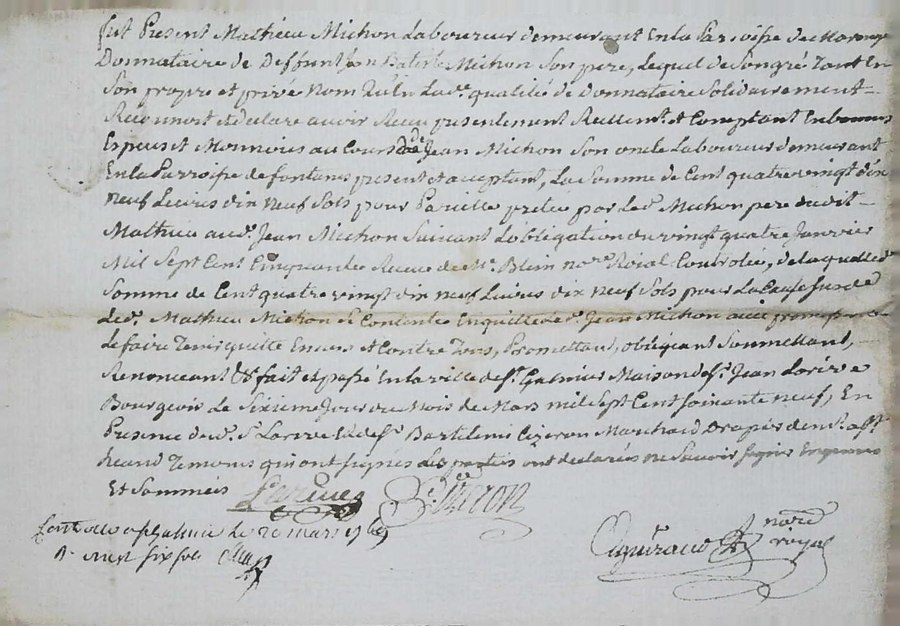 fut Present Mathieu Michon Laboureur demeurant En la Parroisse de
Donnataire de Deffunt Michon Son pere, Lequel de Son gré Tant En
Son propre et privé Nom Qu'En La de. qualité de donnataire Solidairement =
Reconnoit et declare avoir Receu presentement Reellemt. et Comptant En bonnes
Especes et Monnoies au Cours de Jean Michon Son oncle Laboureur demeurant
En la Parroisse de fontanes present et acceptant, La Somme de Cent quatre vingt dix
neuf Livres dix neuf Sols pour Pareille pretée par led. Michon pere dudit =
Mathieu aud. Jean Michon Suivant L'obligation du vingt quatre Janvier
Mil Sept Cent Cinquante Receue de Me. Blein nore. Roial Controlée, de laquelle de.
Somme de Cent quatre vingt dix neuf Livres dix neuf Sols pour La Cause Susde
Led. Mathieu Michon Se Contente En quitte led. Jean Michon avec promesse
de faire Tenir quitte Envers et Contre Tous, Promettant, obligeant Soumettant, =
Renonceant &c fait et passé En la ville de St. Galmier Maison de Sr. Jean Larive
Bourgeois Le Sixieme Jour du Mois de Mars mil Sept Cent Soixante neuf, En
Presence dud. Sr. Larive Et de Sr. Bartelemi Cizeron Marchand Drapier
Temoins qui ont Signés Les parties ont declarées ne Savoir Signer Enquises
Et Sommées Larive Cizeron
Controllé a St Galmier le mars 1769
R neuf six sols
nore
royal